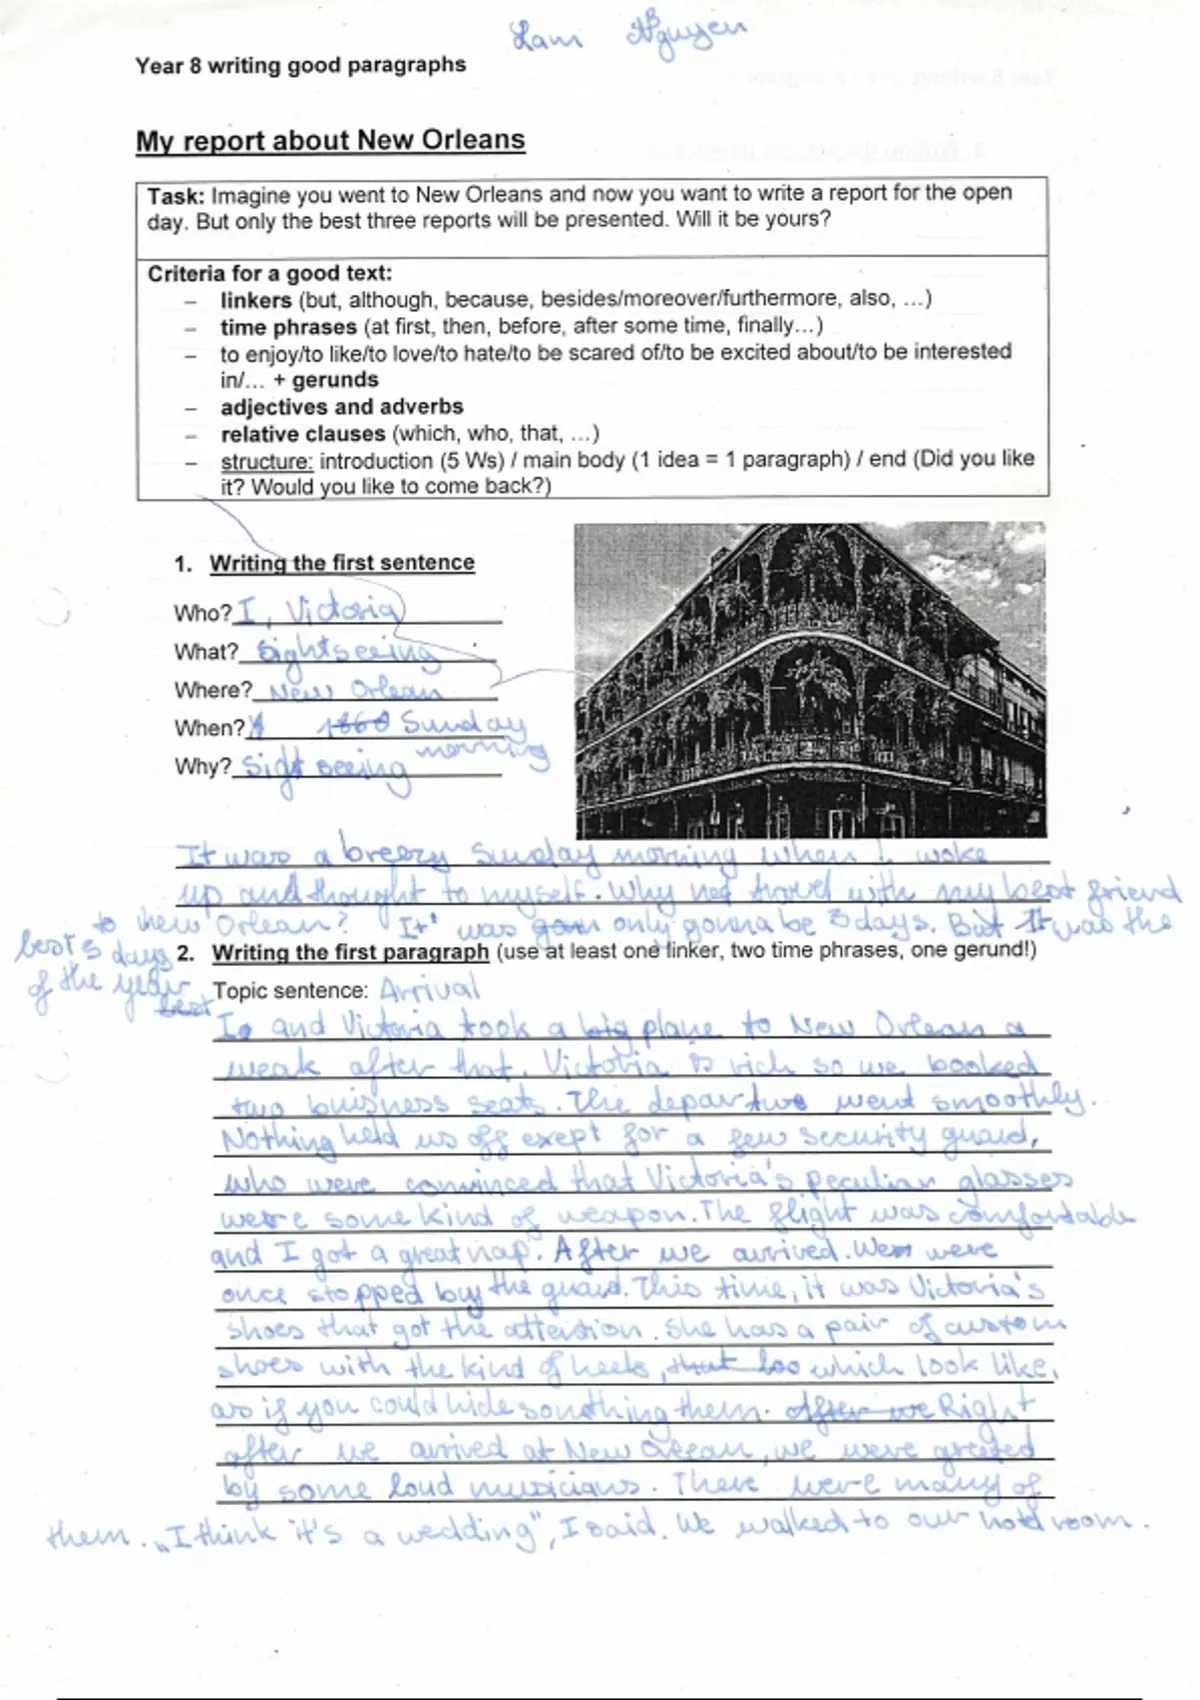 Lam Nguyen
Year 8 writing good paragraphs
My report about New Orleans
Task: Imagine you went to New Orleans and now you want to write a report for the open
day. But only the best three reports will be presented. Will it be yours?
Criteria for a good text:
– linkers (but, although, because, besides/moreover/furthermore, also, …)
– time phrases (at first, then, before, after some time, finally…)
– to enjoy/to like/to love/to hate/to be scared of/to be excited about/to be interested
in/… + gerunds
– adjectives and adverbs
– relative clauses (which, who, that, …)
– structure: introduction (5 Ws) / main body (1 idea = 1 paragraph) / end (Did you like
it? Would you like to come back?)
1. Writing the first sentence
Who? I, Victoria
What? Sightseeing
Where? New Orlean
When? 1860 Sunday
morning
Why? Sight seeing
It was a breezy Sunday morning when I woke
up and thought to myself. Why not travel with my best friend
to new Orlean? It' was only gonna be 3 days. But It was the
best 3 days
of the year
2. Writing the first paragraph (use at least one linker, two time phrases, one gerund!)
Topic sentence: Arrival
best
I and Victoria took a big plane to New Orlean a
weak after that. Victoria is rich so we booked
two buisness seats. The departure went smoothly.
Nothing held us off exept for a few security guard,
who were convinced that Victoria's peculiar glasses
were some kind of weapon. The flight was comfortable
and I got a great nap. After we arrived. We were
once stopped by the guard. This time, it was Victoria's
shoes that got the attention. She has a pair of custom
shoes with the kind of heels, that loo which look like,
as if you could hide somthing them. After we Right
after we arrived at New Orlean, we were greeted
by some loud musicians. There were many of
them. „I think it's a wedding", I said. We walked to our hotel room.